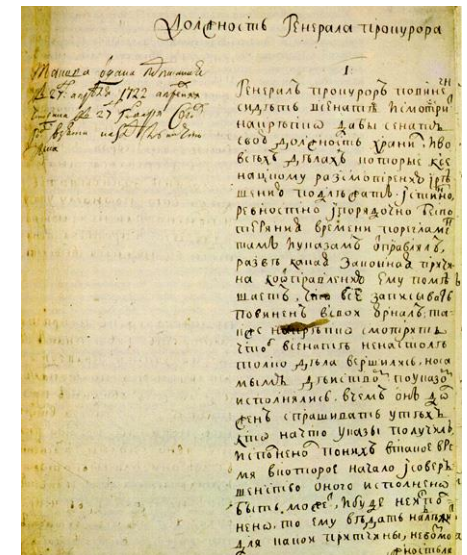 Должность Генерала прокурора
Такова отдана
27 1722
1.
Генералъ прокуроръ повинен
сидѣть в сенате и смотрить
накрѣпко дабы сенатъ
свою должность хранил и во
всѣхъ дѣлахъ которые к се
нацкому разсмотрению и рѣ
шению подлежатъ, истинно,
ревностно и порядочно без по
теряния времени по реглам
там и указамъ отправлялъ,
развѣ какая законная причи
на ко отправлению ему помѣ
шаетъ, что все записывать
повиненъ в свой юрналъ, та
кже накрѣпко смотрить
чтоб в сенате не на столѣ
толко дѣла вершились, но са
мымъ дѣйством по указом
исполнялись, в чемъ онъ дол
женъ спрашивать у тѣхъ
кто на что указы получилъ,
исполнено по них в такое вре
мя в которое начало и совер
шенство оного исполнено
быть может, и буде не испол
нено, то ему вѣдать надлежит
для какой причины, невозмо
жность ль